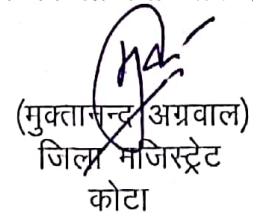 (मुक्तानन्द अग्रवाल)
जिला मजिस्ट्रेट
कोटा